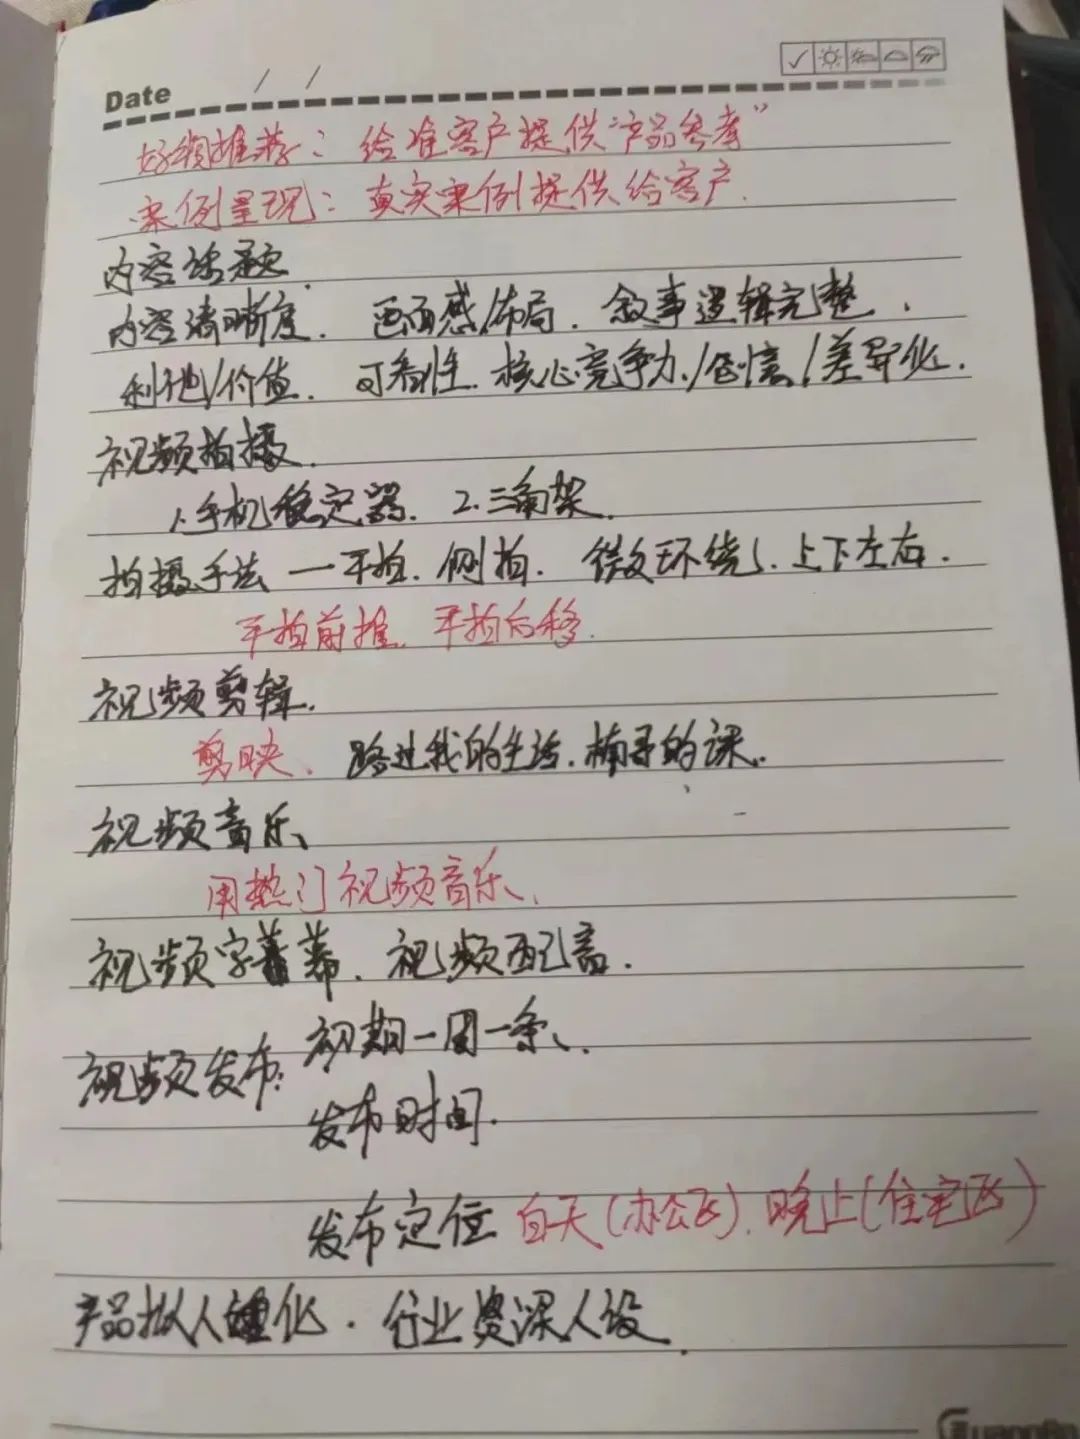 Date / /
好物推荐：给准客户提供"产品参考"
案例呈现：真实案例提供给客户.
内容话题.
内容清晰度. 画面感/布局. 叙事逻辑完整.
利他/价值. 可看性. 核心竞争力/创意/差异化.
视频拍摄.
1.手机稳定器. 2.三角架.
拍摄手法 一平拍. 侧拍. 微环绕、上下左右.
平拍前推. 平拍后移.
视频剪辑.
剪映、路过我的生活. 楠哥的课.
视频音乐、
用热门视频音乐、
视频字幕. 视频配音.
视频发布: 初期一周一条、
发布时间.
发布定位 白天(办公区). 晚上(住宅区)
产品拟人化. 行业资深人设.